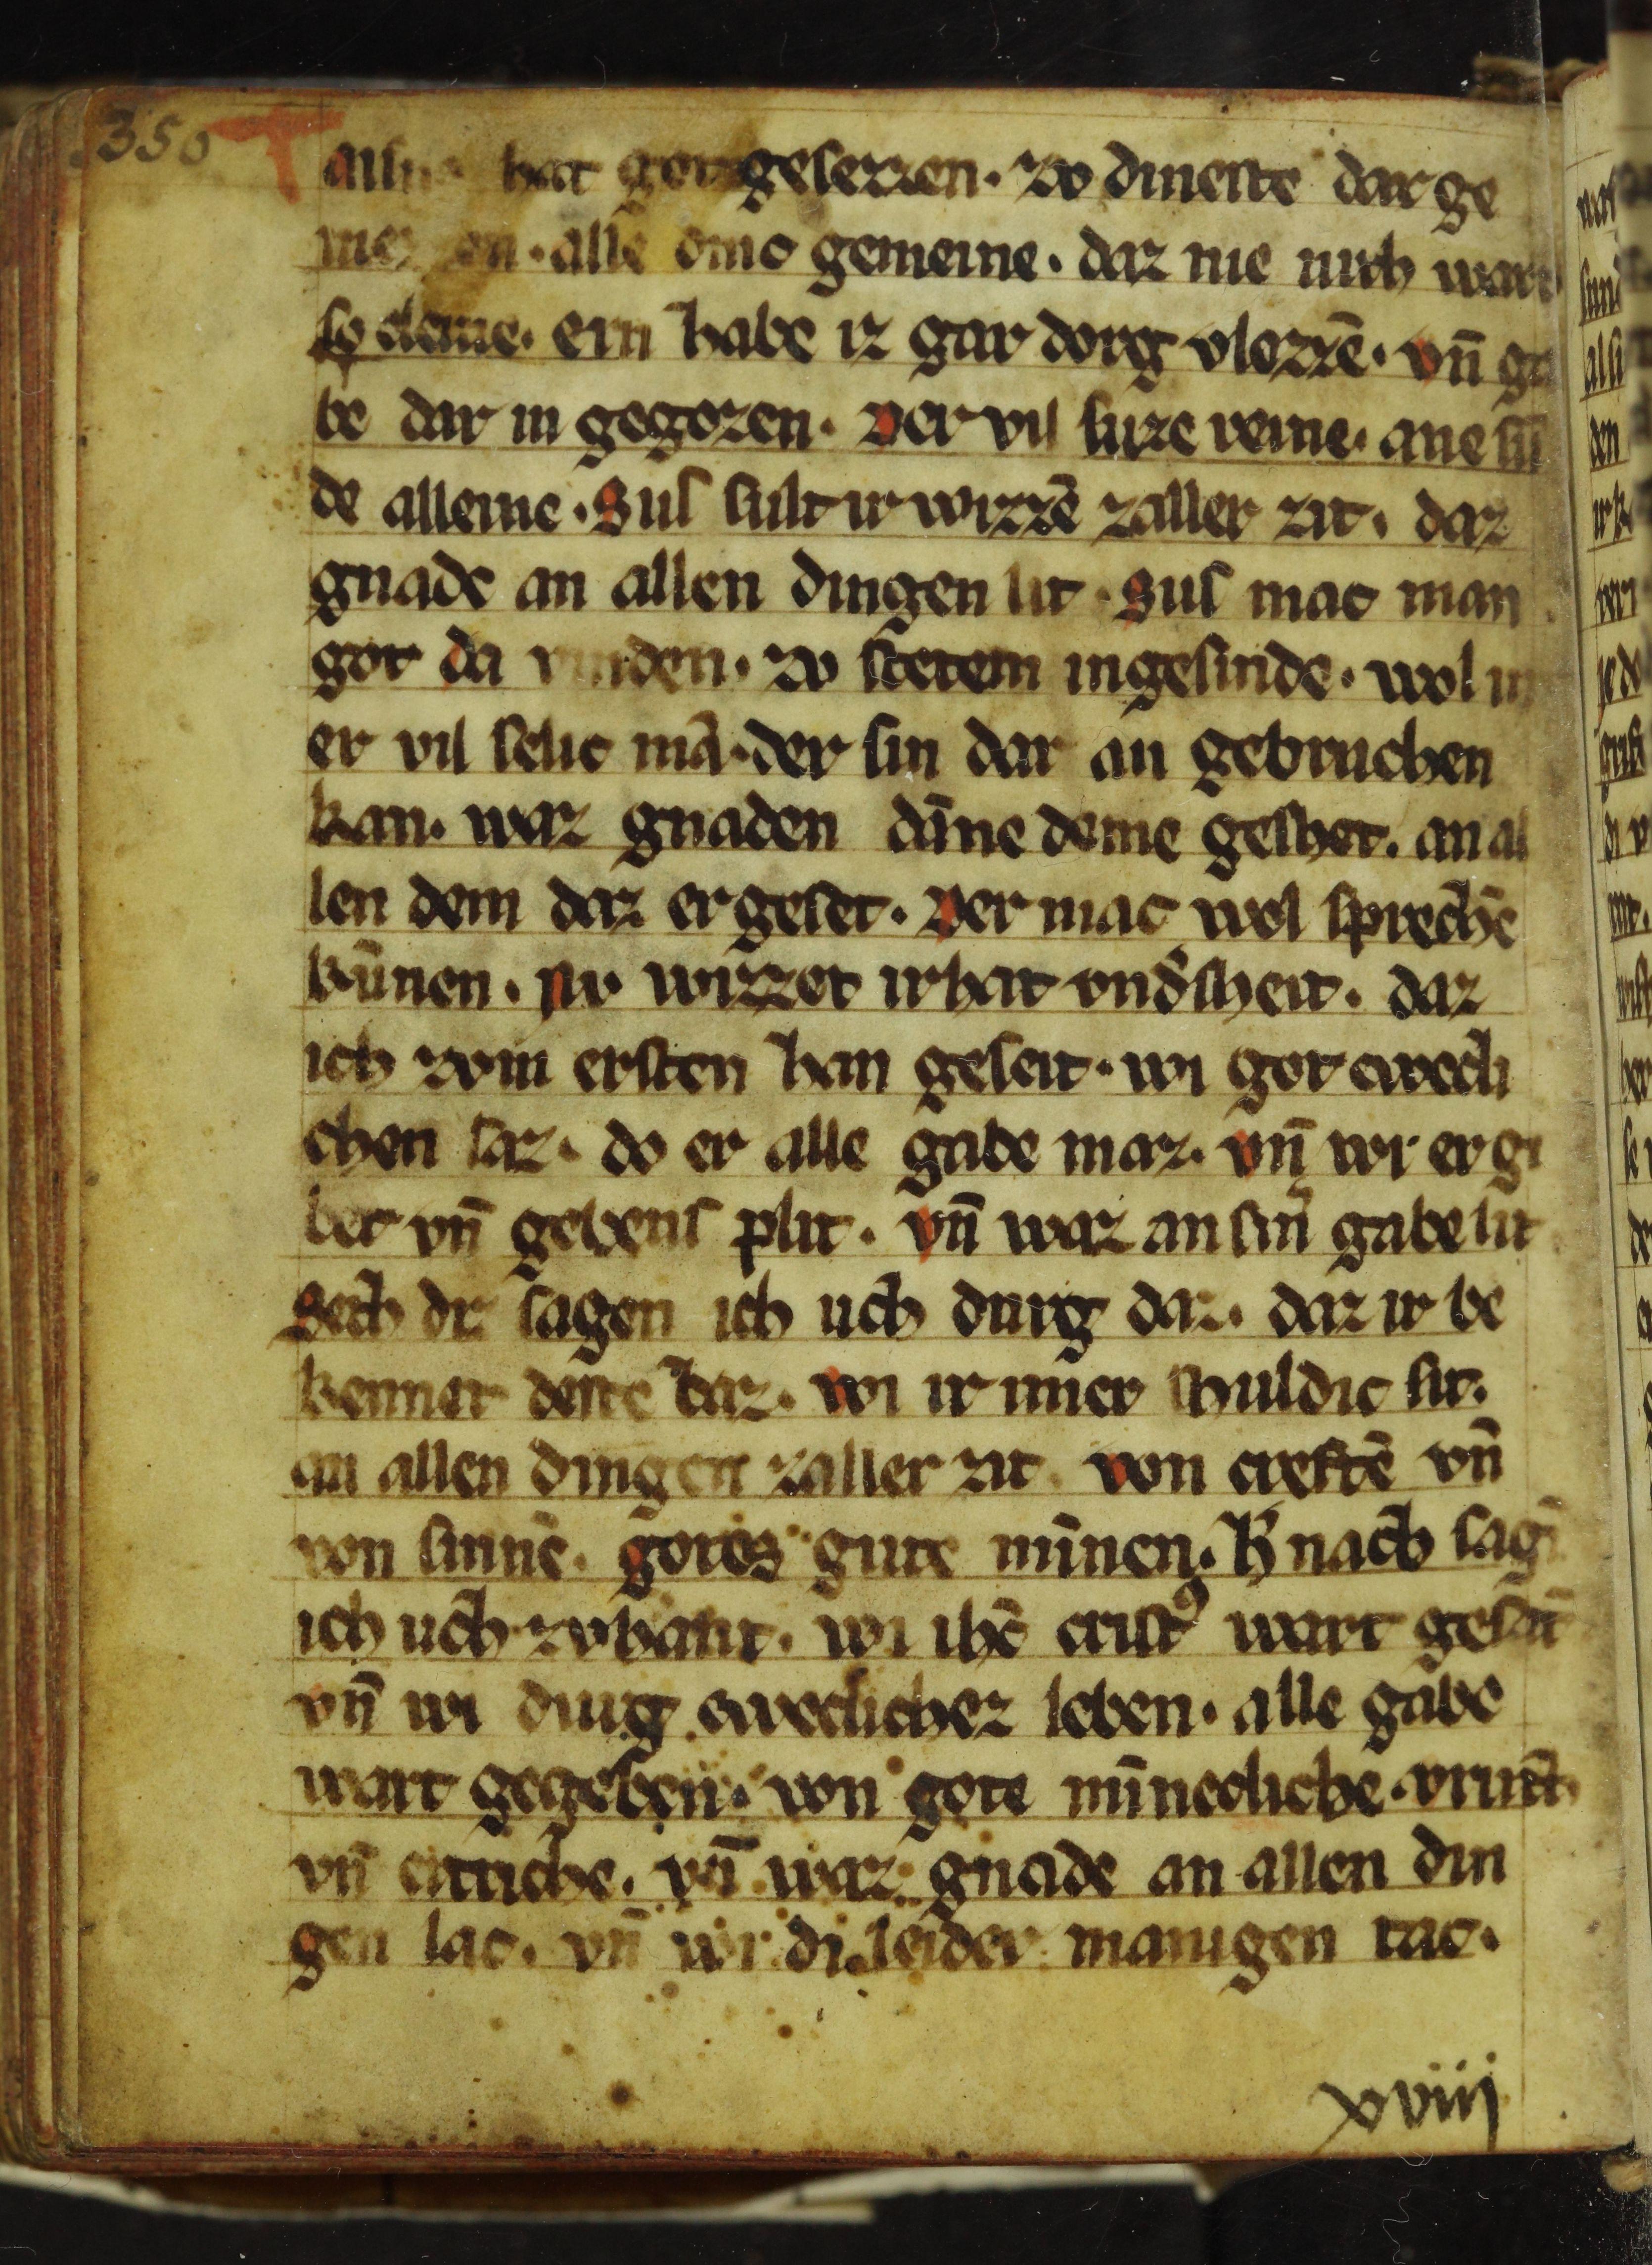 350
hat got gesezzen. zv dineste dar ge
alle dinc gemeine. daz nie nith wart
so cleine. ern habe iz gar dorg vlozzē. vn̄ ga
be dar in gegozen. Der vil suze reine. ane sū
de alleine. Sus sult ir wizzē zaller zit. daz
gnade an allen dingen lit. Sus mac man
got da vinden. zv stetem ingesinde. wol im
er vil selic mā. der sin dar an gebruchen
kan. waz gnaden dāne deme geshet. an al
len dem daz er geset. Der mac wol sprechē
kūnen. Nv wizzet ir hat vnd̄sheit. daz
ich zvm ersten han geseit. wi got ewecli
chen saz. do er alle gabe maz. vn̄ wi er gi
bet vn̄ gebens plit. vn̄ waz an sin̄ gabe lit
Sech diz sagen ich uch durg daz. daz ir be
kennet deste baz. wi ir imer shuldic sit.
an allen dingen zaller zit. von creftē vn̄
von sinnē. gotes gute mīnen. H nach sagē
ich uch zvhant. wi ihc̄ crist⁹ wart gesāt
vn̄ wi durg ewecliches leben. alle gabe
wart gegeben. von gote mīnecliche. vruntl
vn̄ citriche. vn̄ waz gnade an allen din
gen lac. vn̄ wir di leider manigen tac.
xviiij